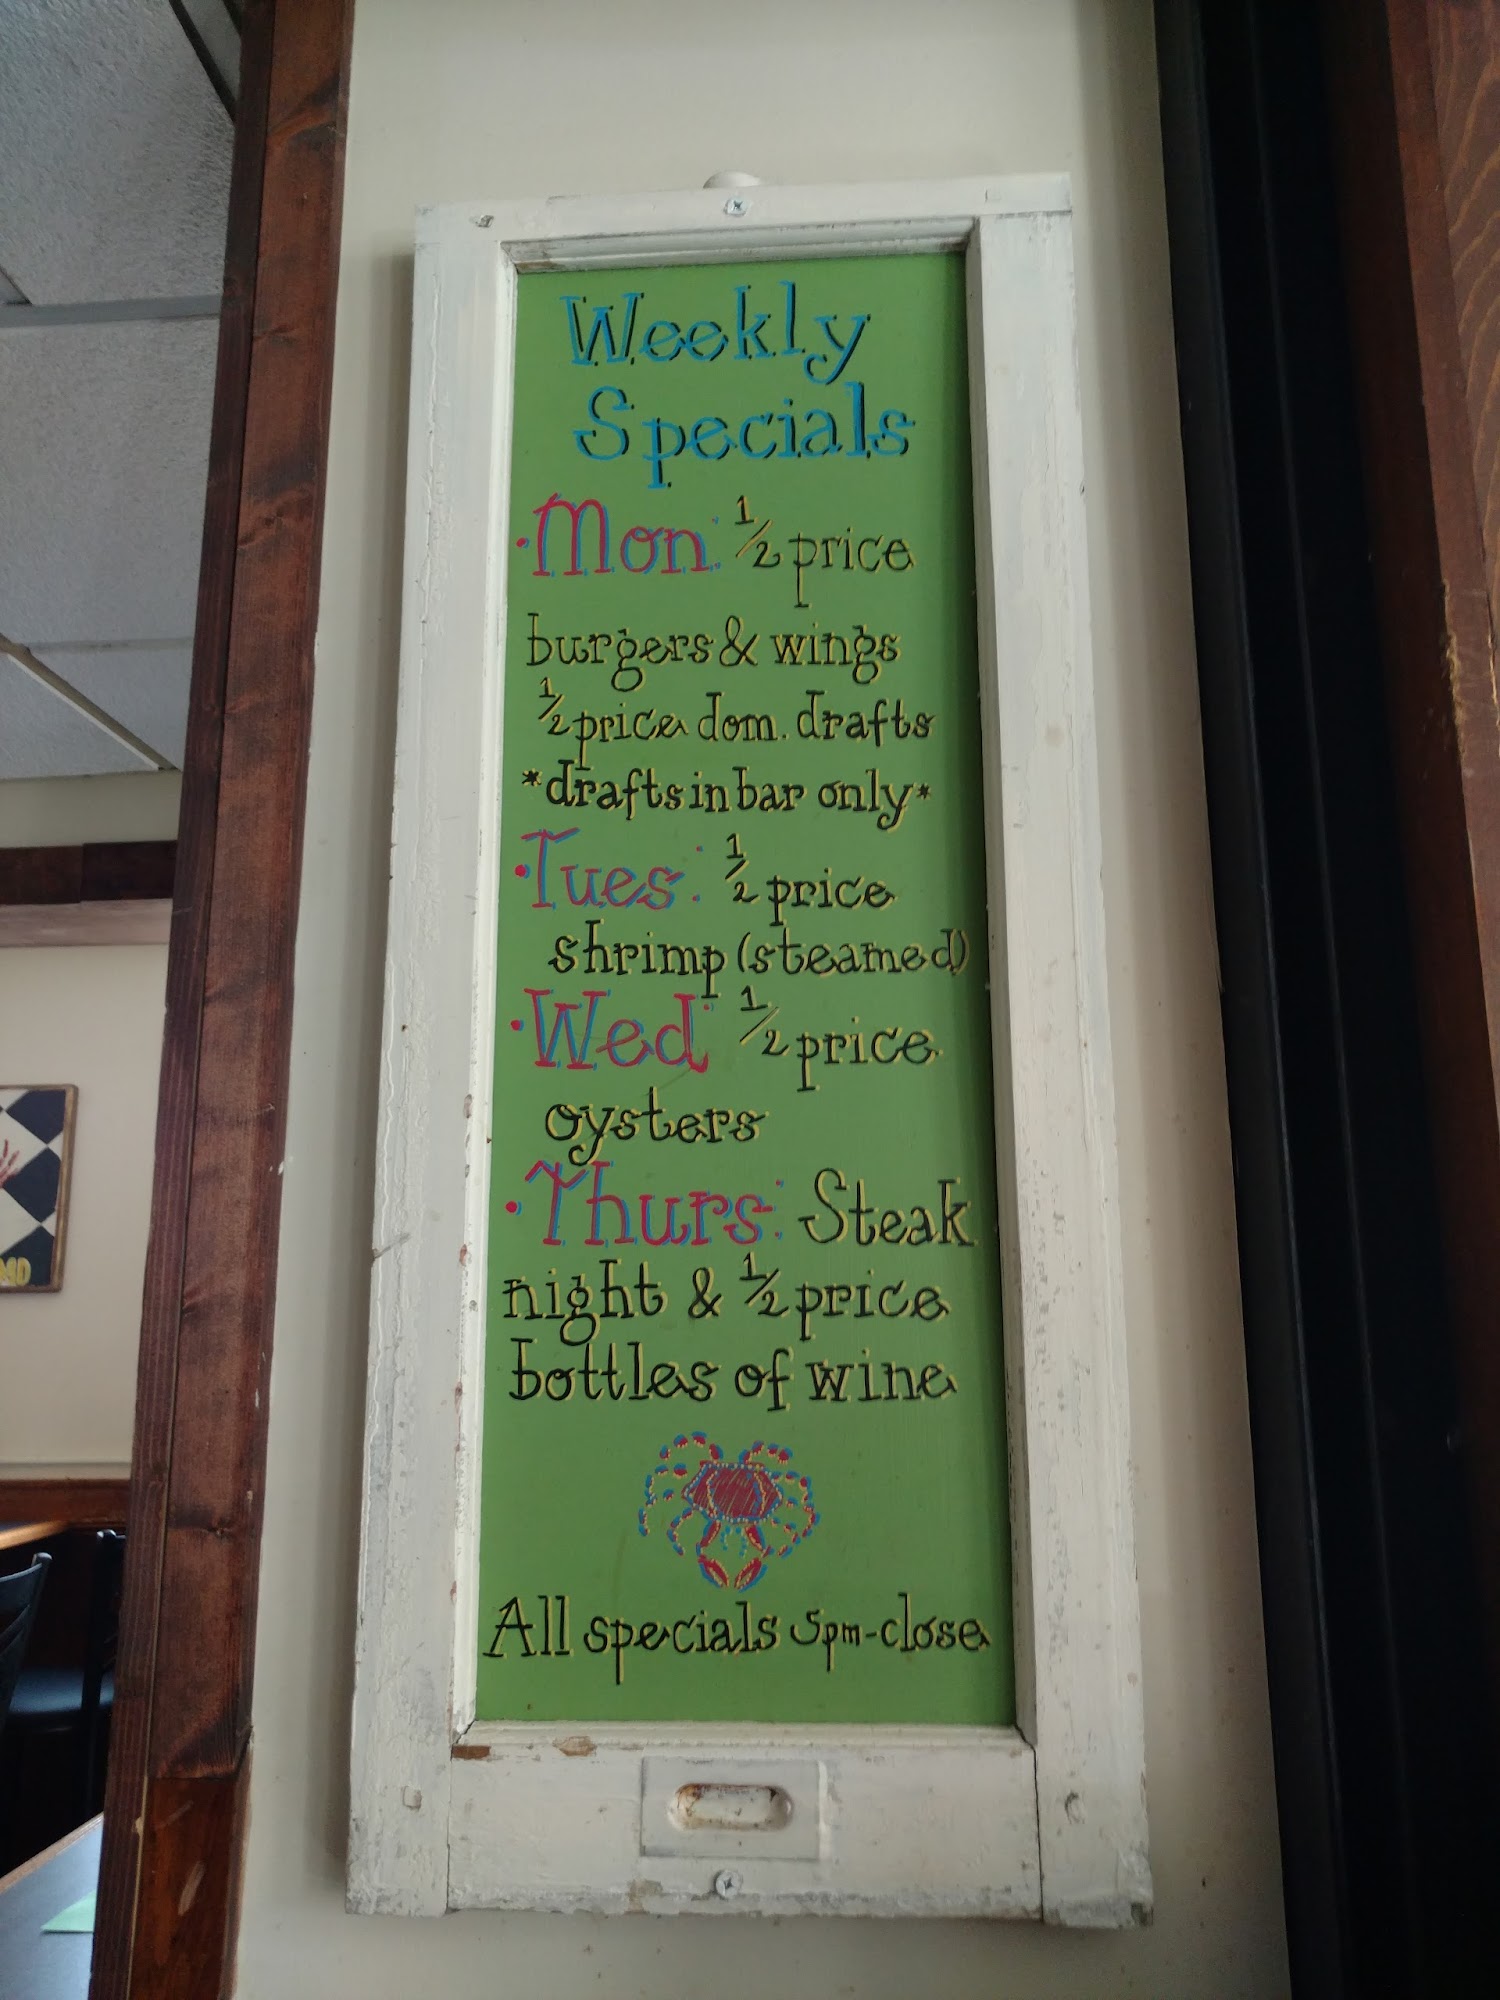 Weekly
Specials
·Mon: 1/2 price
burgers & wings
1/2 price dom. drafts
*drafts in bar only*
·Tues: 1/2 price
shrimp (steamed)
·Wed: 1/2 price
oysters
·Thurs: Steak
night & 1/2 price
bottles of wine
All specials 5pm-close